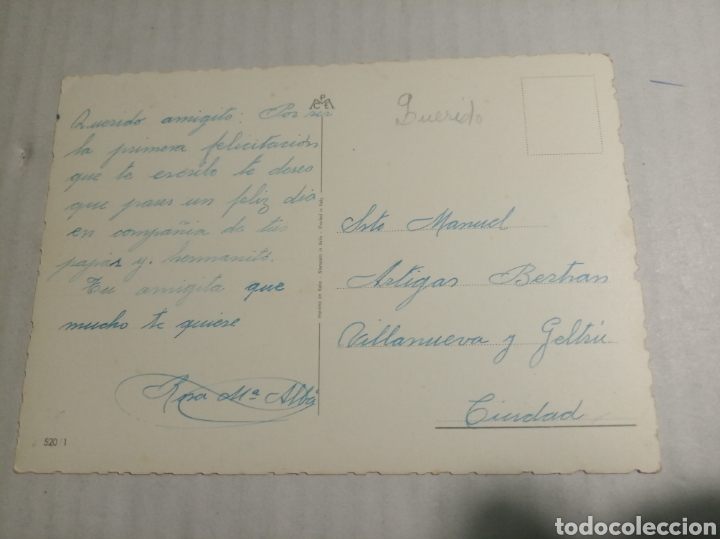 Querido amigito: Por ser
la primera felicitación
que te escribo te deseo
que pases un feliz dia
en compañia de tus
papias y hermanito.
Tu amigita que
mucho te quiere
Rosa Mª Albá
520/1
Querido
Srto Manuel
Artigas Bertran
Villanueva y Geltrú
Ciudad
todocoleccion